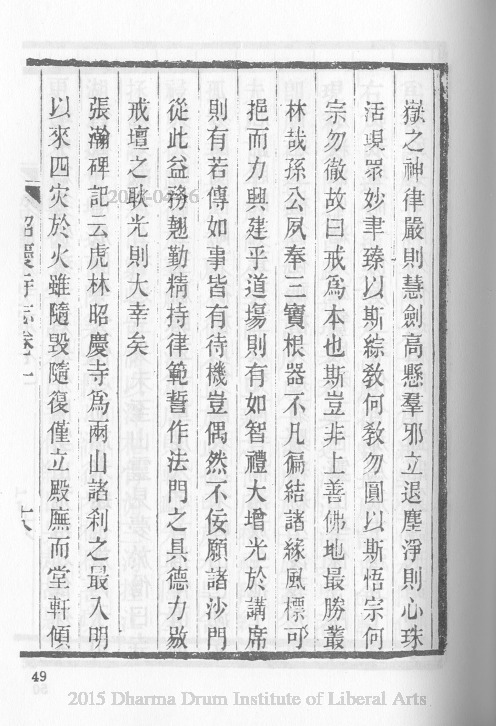 嶽之神律嚴則慧劍高懸羣邪立退塵淨則心珠
活現眾妙聿臻以斯綜敎何敎勿圓以斯悟宗何
宗勿徹故曰戒爲本也斯豈非上善佛地最勝叢
林哉孫公夙奉三寶根器不凡徧結諸緣風標可
挹而力興建乎道場則有如智禮大增光於講席
則有若傳如事皆有待機豈偶然不佞願諸沙門
從此益務翹勤精持律範誓作法門之具德力啟
戒壇之耿光則大幸矣
張瀚碑記云虎林昭慶寺爲兩山諸剎之最入明
以來四灾於火雖隨毀隨復僅立殿廡而堂軒傾
昭慶寺志卷一
49
2015 Dharma Drum Institute of Liberal Arts